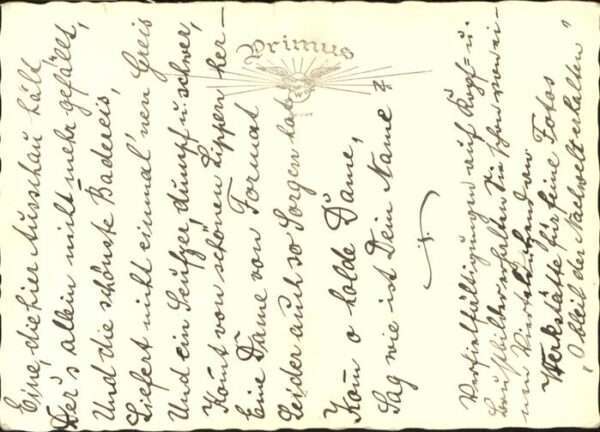 Eine, die hier Ausschau hält
Der's allein nicht mehr gefället,
Und die schönste Badereis,
Liefert nicht einmal 'nen Greis
Und ein Seufzer, dumpf u. schwer,
Kom̄t von schönen Lippen her-
Eine Dame von Format
Leider auch so Sorgen hat
Kom̄ o holde Dame,
Sag wie ist Dein Name?
Vervielfältigungen auf u.
erhalten Sie schon von ei-
nem an
Werkstätte für feine Fotos
"O bleib der Nachwelt erhalten"
Primus